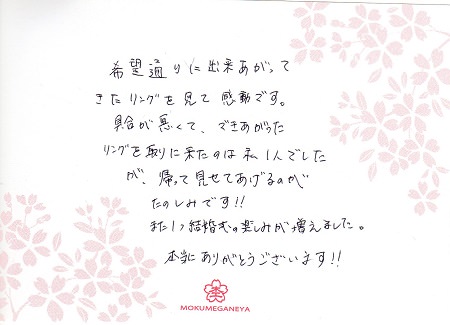 希望通りに出来あがって
きたリングを見て感動です。
具合が悪くて、できあがった
リングを取りに来たのは私1人でした
が、帰って見せてあげるのが
たのしみです!!
また1つ結婚式の楽しみが増えました。
本当にありがとうございます!!
MOKUMEGANEYA